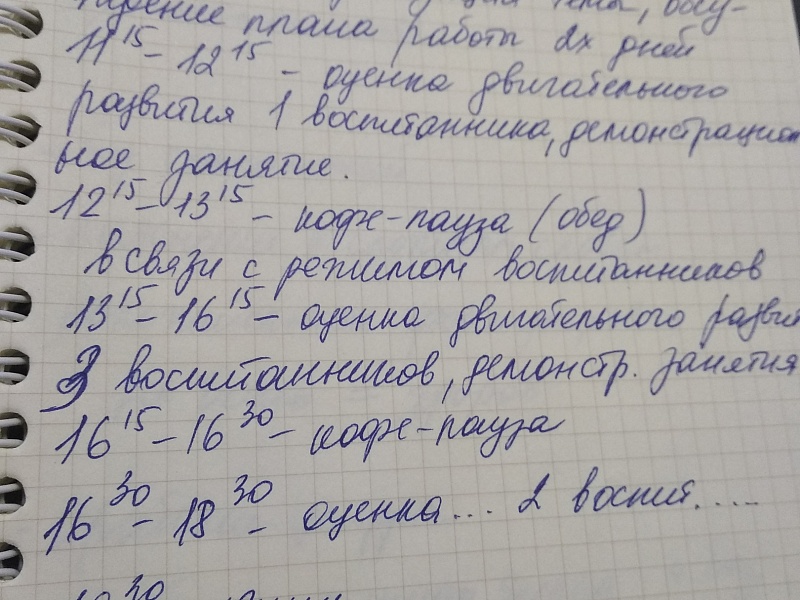 плана работы 2х дней
11 15 - 12 15 - оценка двигательного
развития 1 воспитанника, демонстрацион
ное занятие.
12 15 - 13 15 - кофе-пауза (обед)
в связи с режимом воспитанников
13 15 - 16 15 - оценка двигательного развит
3 воспитанников, демонстр. занятия
16 15 - 16 30 - кофе-пауза
16 30 - 18 30 - оценка... 2 воспит....
30